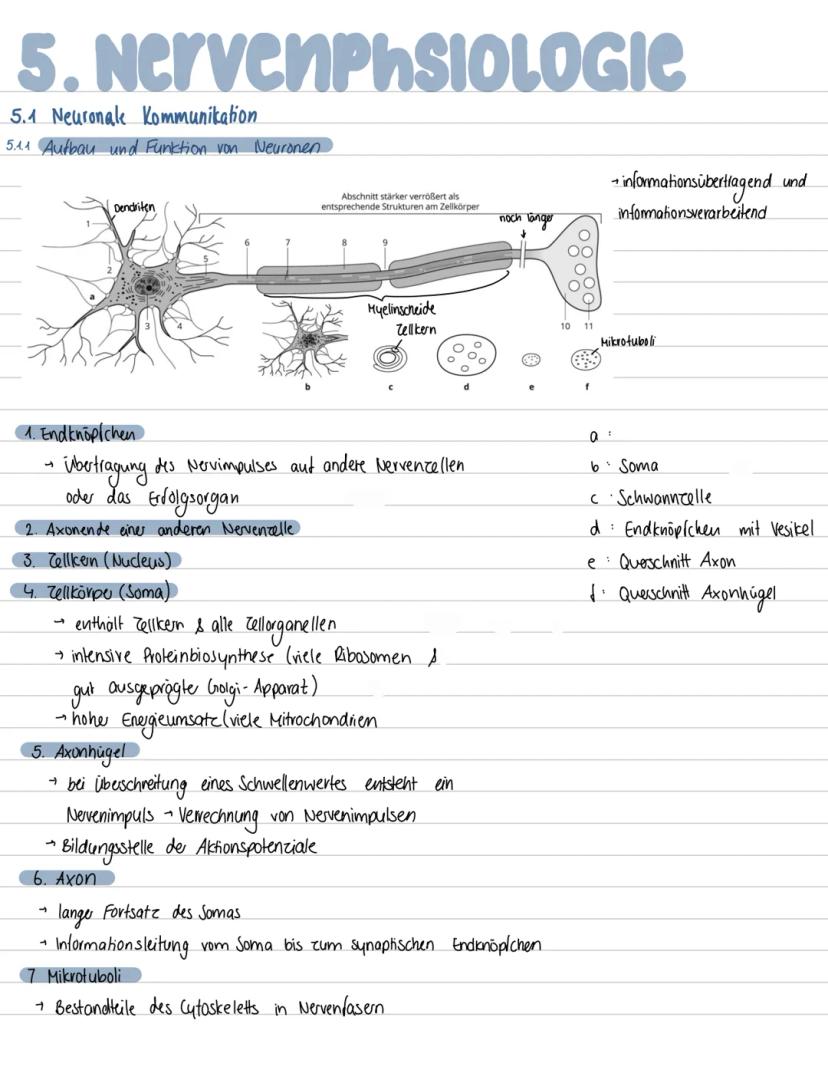 5. Nervenphsiologie
5.1 Neuronale Kommunikation
5.1.1 Aufbau und Funktion von Neuronen
→ informationsübertragend und
informationsverarbeitend
Abschnitt stärker verrößert als
entsprechende Strukturen am Zellkörper
Dendriten
noch länger
1
2
3
4
5
6
7
8
9
10
11
a
Myelinscheide
Zellkern
Mikrotuboli
b
c
d
e
f
1. Endknöpfchen
→ Übertragung des Nervimpulses auf andere Nervenzellen
oder das Erfolgsorgan
2. Axonende einer anderen Nervenzelle
3. Zellkern (Nucleus)
4. Zellkörper (Soma)
→ enthält Zellkern & alle Zellorganellen
→ intensive Proteinbiosynthese (viele Ribosomen &
gut ausgeprägter Golgi-Apparat)
→ hoher Energieumsatz (viele Mitrochondrien
5. Axonhügel
→ bei Überschreitung eines Schwellenwertes entsteht ein
Nervenimpuls → Verrechnung von Nervenimpulsen
→ Bildungsstelle der Aktionspotenziale
6. Axon
→ langer Fortsatz des Somas
→ Informationsleitung vom Soma bis zum synaptischen Endknöpfchen
7 Mikrotuboli
→ Bestandteile des Cytoskeletts in Nervenfasern
a :
b : Soma
c : Schwannzelle
d : Endknöpfchen mit Vesikel
e : Querschnitt Axon
f : Querschnitt Axonhügel